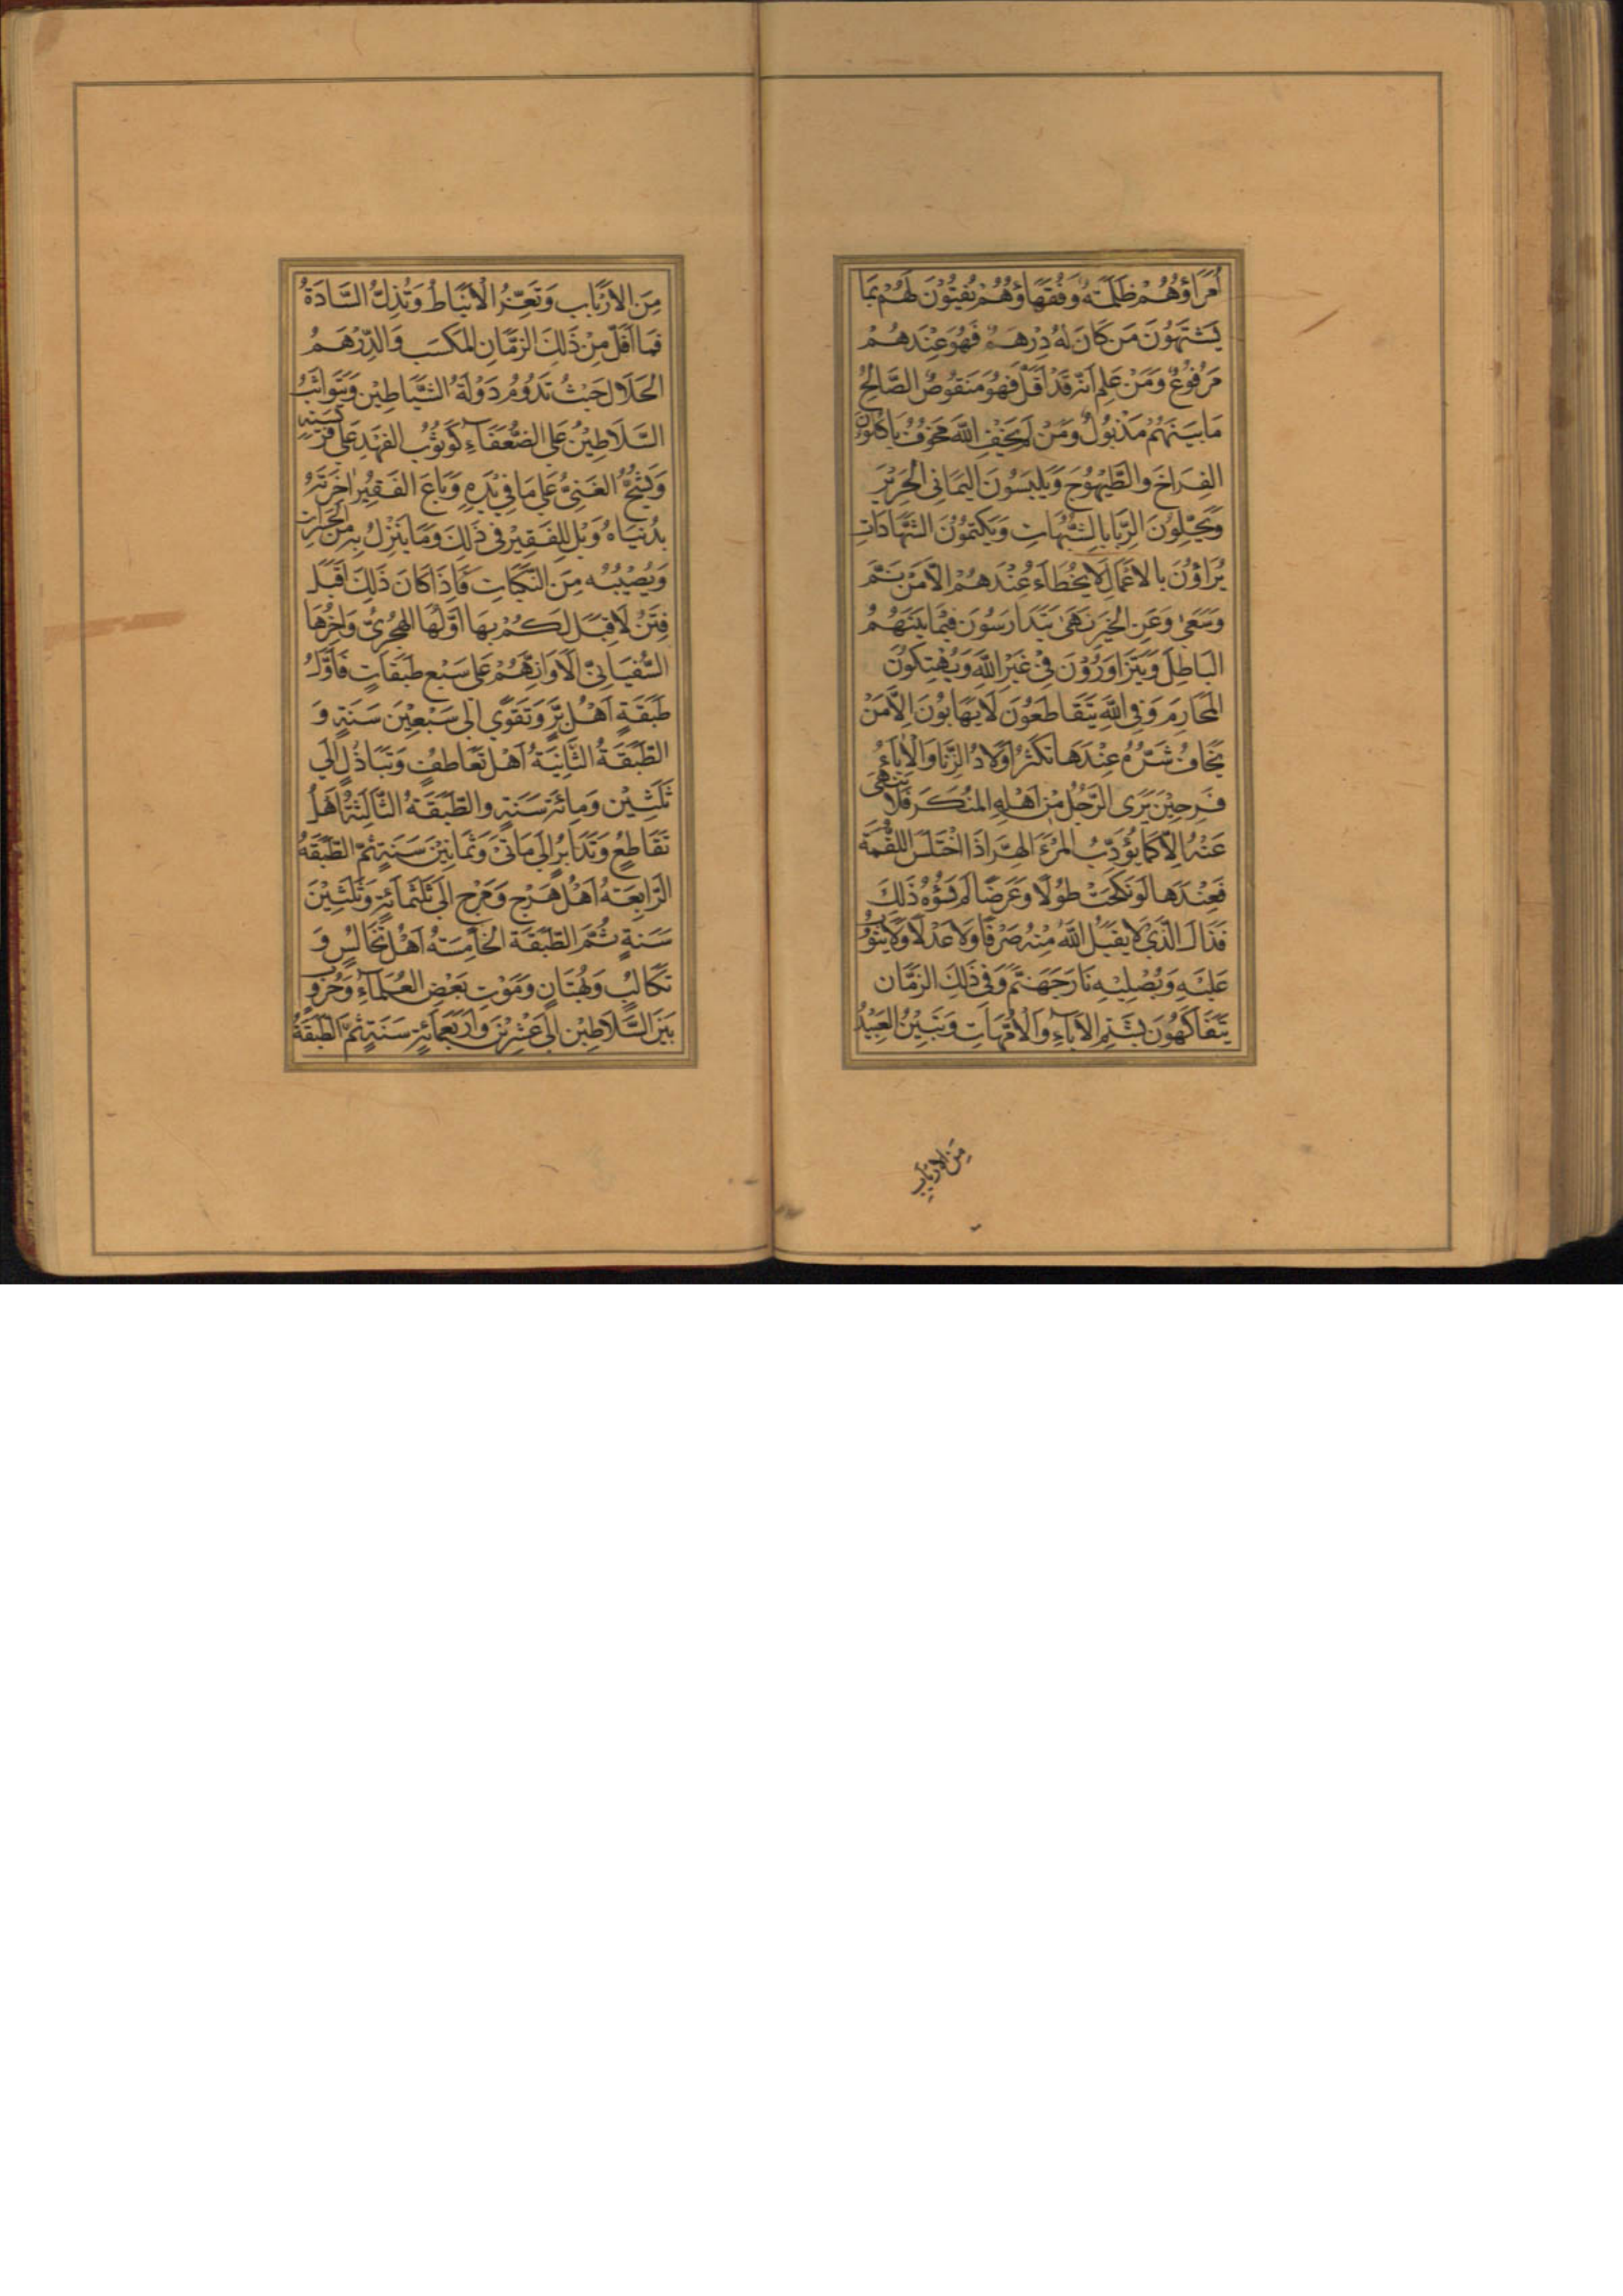 اُمَرَاؤُهُمْ ظَلَمَةٌ وَفُقَهَاؤُهُمْ يُفْتُوْنَ لَهُمْ بِمَا
يَشْتَهُوْنَ مَنْ كَانَ لَهُ دِرْهَمٌ فَهُوَ عِنْدَهُمْ
مَرْفُوْعٌ وَمَنْ عَلِمَ اَنَّهُ قَدْ اَقَلَّ فَهُوَ مَنْقُوْصٌ الصَّالِحُ
مَا بَيْنَهُمْ مَذْبُولٌ وَمَنْ لَمْ يَخَفِ اللّٰهَ مَخَوْفٌ يَأكُلُوْنَ
الفِرَاخَ وَالطَّيْهُوْجَ وَيَلْبَسُوْنَ اليَمَانِى الحَرِيْرَ
وَيُحَلِّلُوْنَ الرِّبَا بِالشُّبُهَاتِ وَيَكْتُمُوْنَ الشَّهَادَاتِ
يُرَاؤُنَ بِالاَعْمَالِ لَا يَخْطَاءُ عِنْدَهُمْ اِلَّا مَنْ نَمَّ
وَسَعٰى وَعَنِ الخَيْرِ نَهٰى يَتَدَارَسُوْنَ فِيْمَا بَيْنَهُمُ
البَاطِلَ وَيَتَزَاوَرُوْنَ فِيْ غَيْرِ اللّٰهِ وَيَهْتِكُوْنَ
المَحَارِمَ وَفِى اللّٰهِ يَتَقَاطَعُوْنَ لَا يَهَابُوْنَ اِلَّا مَنْ
يَخَافُ شَرَّهُمْ عِنْدَهَا تَكْثُرُ اَوْلَادُ الزِّنَا وَالْاٰبَاءُ
فَرِحِيْنَ يَرَى الرَّجُلُ مِنْ اَهْلِهِ المُنْكَرَ فَلَا يَنْهٰى
عَنْهُ اِلَّا كَمَا يُؤَدِّبُ المَرْءُ الهِرَّ اِذَا اخْتَلَسَ اللُّقْمَةَ
فَعِنْدَهَا لَوْ نُكِحَتْ طُوْلًا وَعَرْضًا لَمْ يَسُؤْهُ ذٰلِكَ
فَذَاكَ الَّذِىْ لَا يَقْبَلُ اللّٰهُ مِنْهُ صَرْفًا وَلَا عَدْلًا وَلَا يَتُوْبُ
عَلَيْهِ وَيُصْلِيْهِ نَارَ جَهَنَّمَ وَفِى ذٰلِكَ الزَّمَانِ
يَتَفَاكَهُوْنَ بِشَتْمِ الاٰبَاءِ وَالْاُمَّهَاتِ وَتَبِيْنُ العَبِيْدُ
مِنَ الاَرْبَابِ
مِنَ الاَرْبَابِ وَتَعِزُّ الْاَنْبَاطُ وَتُذِلُّ السَّادَةُ
فَمَا اَقَلَّ مِنْ ذَلِكَ الزَّمَانِ المَكْسَبَ وَالدِّرْهَمُ
الحَلَالَ حَيْثُ تَدُوْمُ دَوْلَةُ الشَّيَاطِيْنِ وَيَتَوَاثَبُ
السَّلَاطِيْنُ عَلَى الضُّعَفَاءِ كَوُثُوْبِ الفَهْدِ عَلٰى فَرِيْسَتِهِ
وَيَشُحُّ الغَنِيُّ عَلٰى مَا فِيْ يَدِهِ وَبَاعَ الفَقِيْرُ اٰخِرَتَهُ
بِدُنْيَاهُ وَيْلٌ لِلْفَقِيْرِ فِى ذٰلِكَ وَمَا يَنْزِلُ بِهِ مِنَ
وَيُصِيْبُهُ مِنَ النَّكَبَاتِ فَاِذَا كَانَ ذٰلِكَ اَقْبَلَ
فِتَنٌ لَا قِبَلَ لَكُمْ بِهَا اَوَّلُهَا الهِجْرِىُّ وَاٰخِرُهَا
السُّفْيَانِىُّ اَلَا وَاِنَّهُمْ عَلٰى سَبْعِ طَبَقَاتٍ فَاَوَّلُ
طَبَقَةٍ اَهْلُ بِرٍّ وَتَقْوٰى اِلٰى سَبْعِيْنَ سَنَةٍ وَ
الطَّبَقَةُ الثَّانِيَةُ اَهْلُ تَعَاطُفٍ وَتَبَاذُلٍ اِلٰى
ثَلٰثِيْنَ وَمِائَةِ سَنَةٍ وَالطَّبَقَةُ الثَّالِثَةُ اَهْلُ
تَقَاطُعٍ وَتَدَابُرٍ اِلٰى مَاتَىْ وَثَمَانِيْنَ سَنَةٍ ثُمَّ الطَّبَقَةُ
الرَّابِعَةُ اَهْلُ هَرْجٍ وَمَرْجٍ اِلٰى ثَلٰثَمَائَةٍ وَثَلٰثِيْنَ
سَنَةٍ ثُمَّ الطَّبَقَةُ الخَامِسَةُ اَهْلُ تَخَالُسٍ وَ
تَكَالُبٍ وَبُهْتَانٍ وَمَوْتِ بَعْضِ العُلَمَاءِ وَحُرُوْبٍ
بَيْنَ السَّلَاطِيْنِ اِلٰى عِشْرِيْنَ وَاَرْبَعِمِائَةِ سَنَةٍ ثُمَّ الطَّبَقَةُ